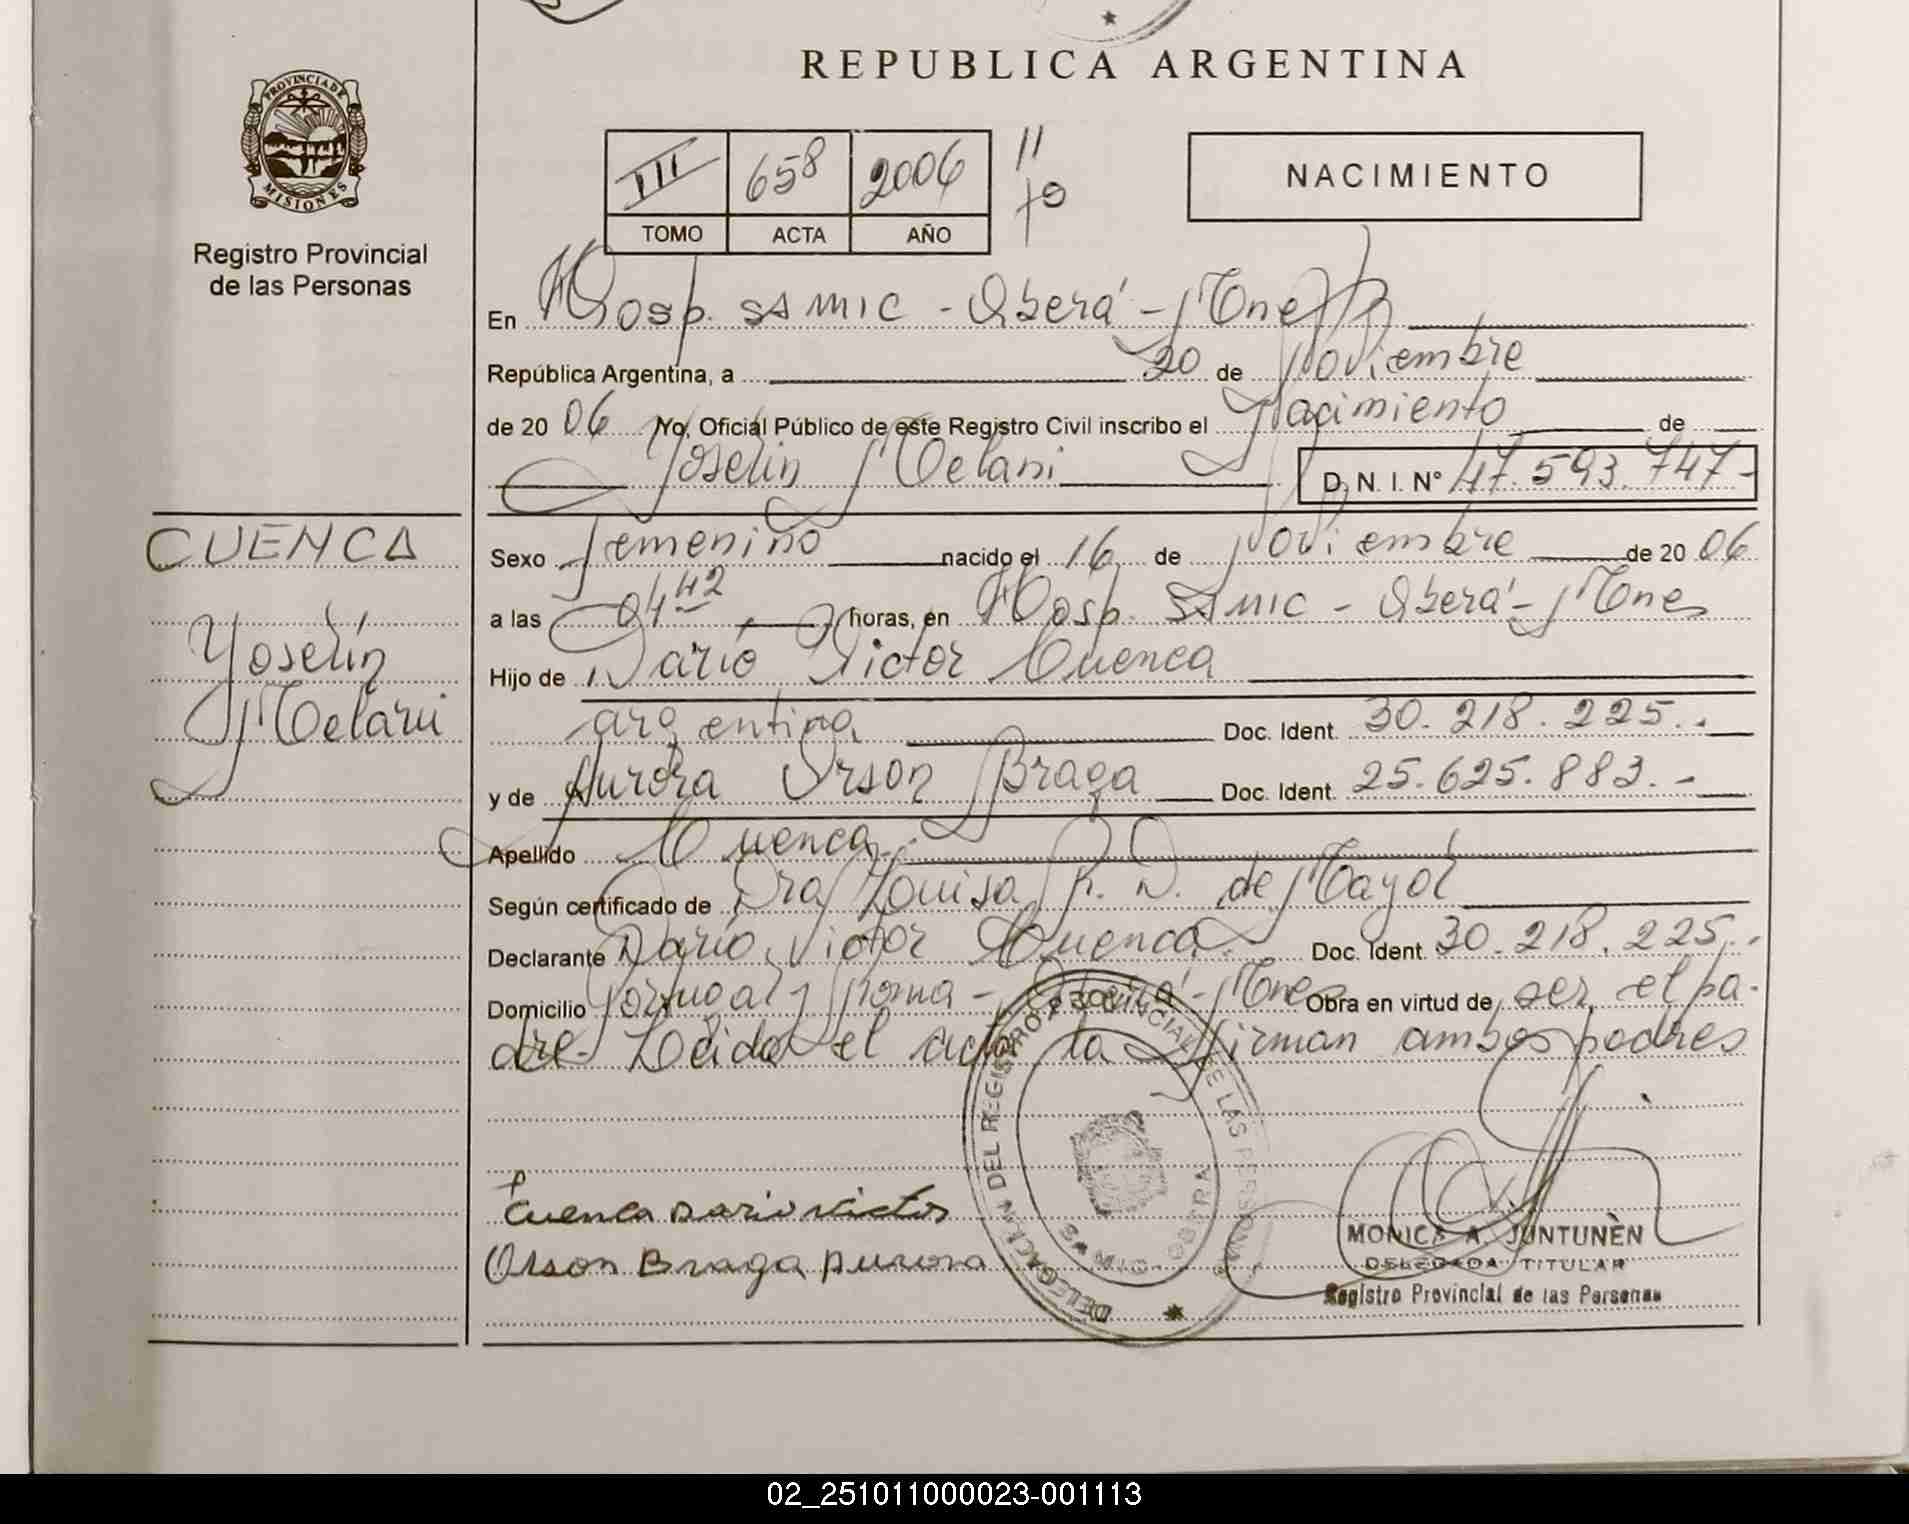 PROVINCIA DE
MISIONES
Registro Provincial
de las Personas
REPUBLICA ARGENTINA
III 658 2006
TOMO ACTA AÑO
NACIMIENTO
En Hosp. SAMIC - Oberá - Mnes
República Argentina, a 20 de Noviembre
de 2006 Yo, Oficial Público de este Registro Civil inscribo el Nacimiento de
Yoselin Melani D.N.I. Nº 47.593.747-
CUENCA
Yoselin
Melani
Sexo femenino nacido el 16 de Noviembre de 2006
a las 04 42 horas, en Hosp. SAMIC - Oberá - Mnes
Hijo de Dario Victor Cuenca
argentina Doc. Ident. 30.218.225.-
y de Aurora Orson Braga Doc. Ident. 25.625.883.-
Apellido Cuenca
Según certificado de Dra Louisa R. D. de Mayol
Declarante Dario Victor Cuenca Doc. Ident. 30.218.225.-
Domicilio Portugal y Roma - Oberá - Mnes Obra en virtud de ser el pa-
dre. Leida el acta la firman ambos padres
DELEGACION DEL REGISTRO PROVINCIAL DE LAS PERSONAS
Cuenca Dario Victor
Orson Braga Aurora
MONICA A. JUNTUNÈN
DELEGADA TITULAR
Registro Provincial de las Personas
02_251011000023-001113